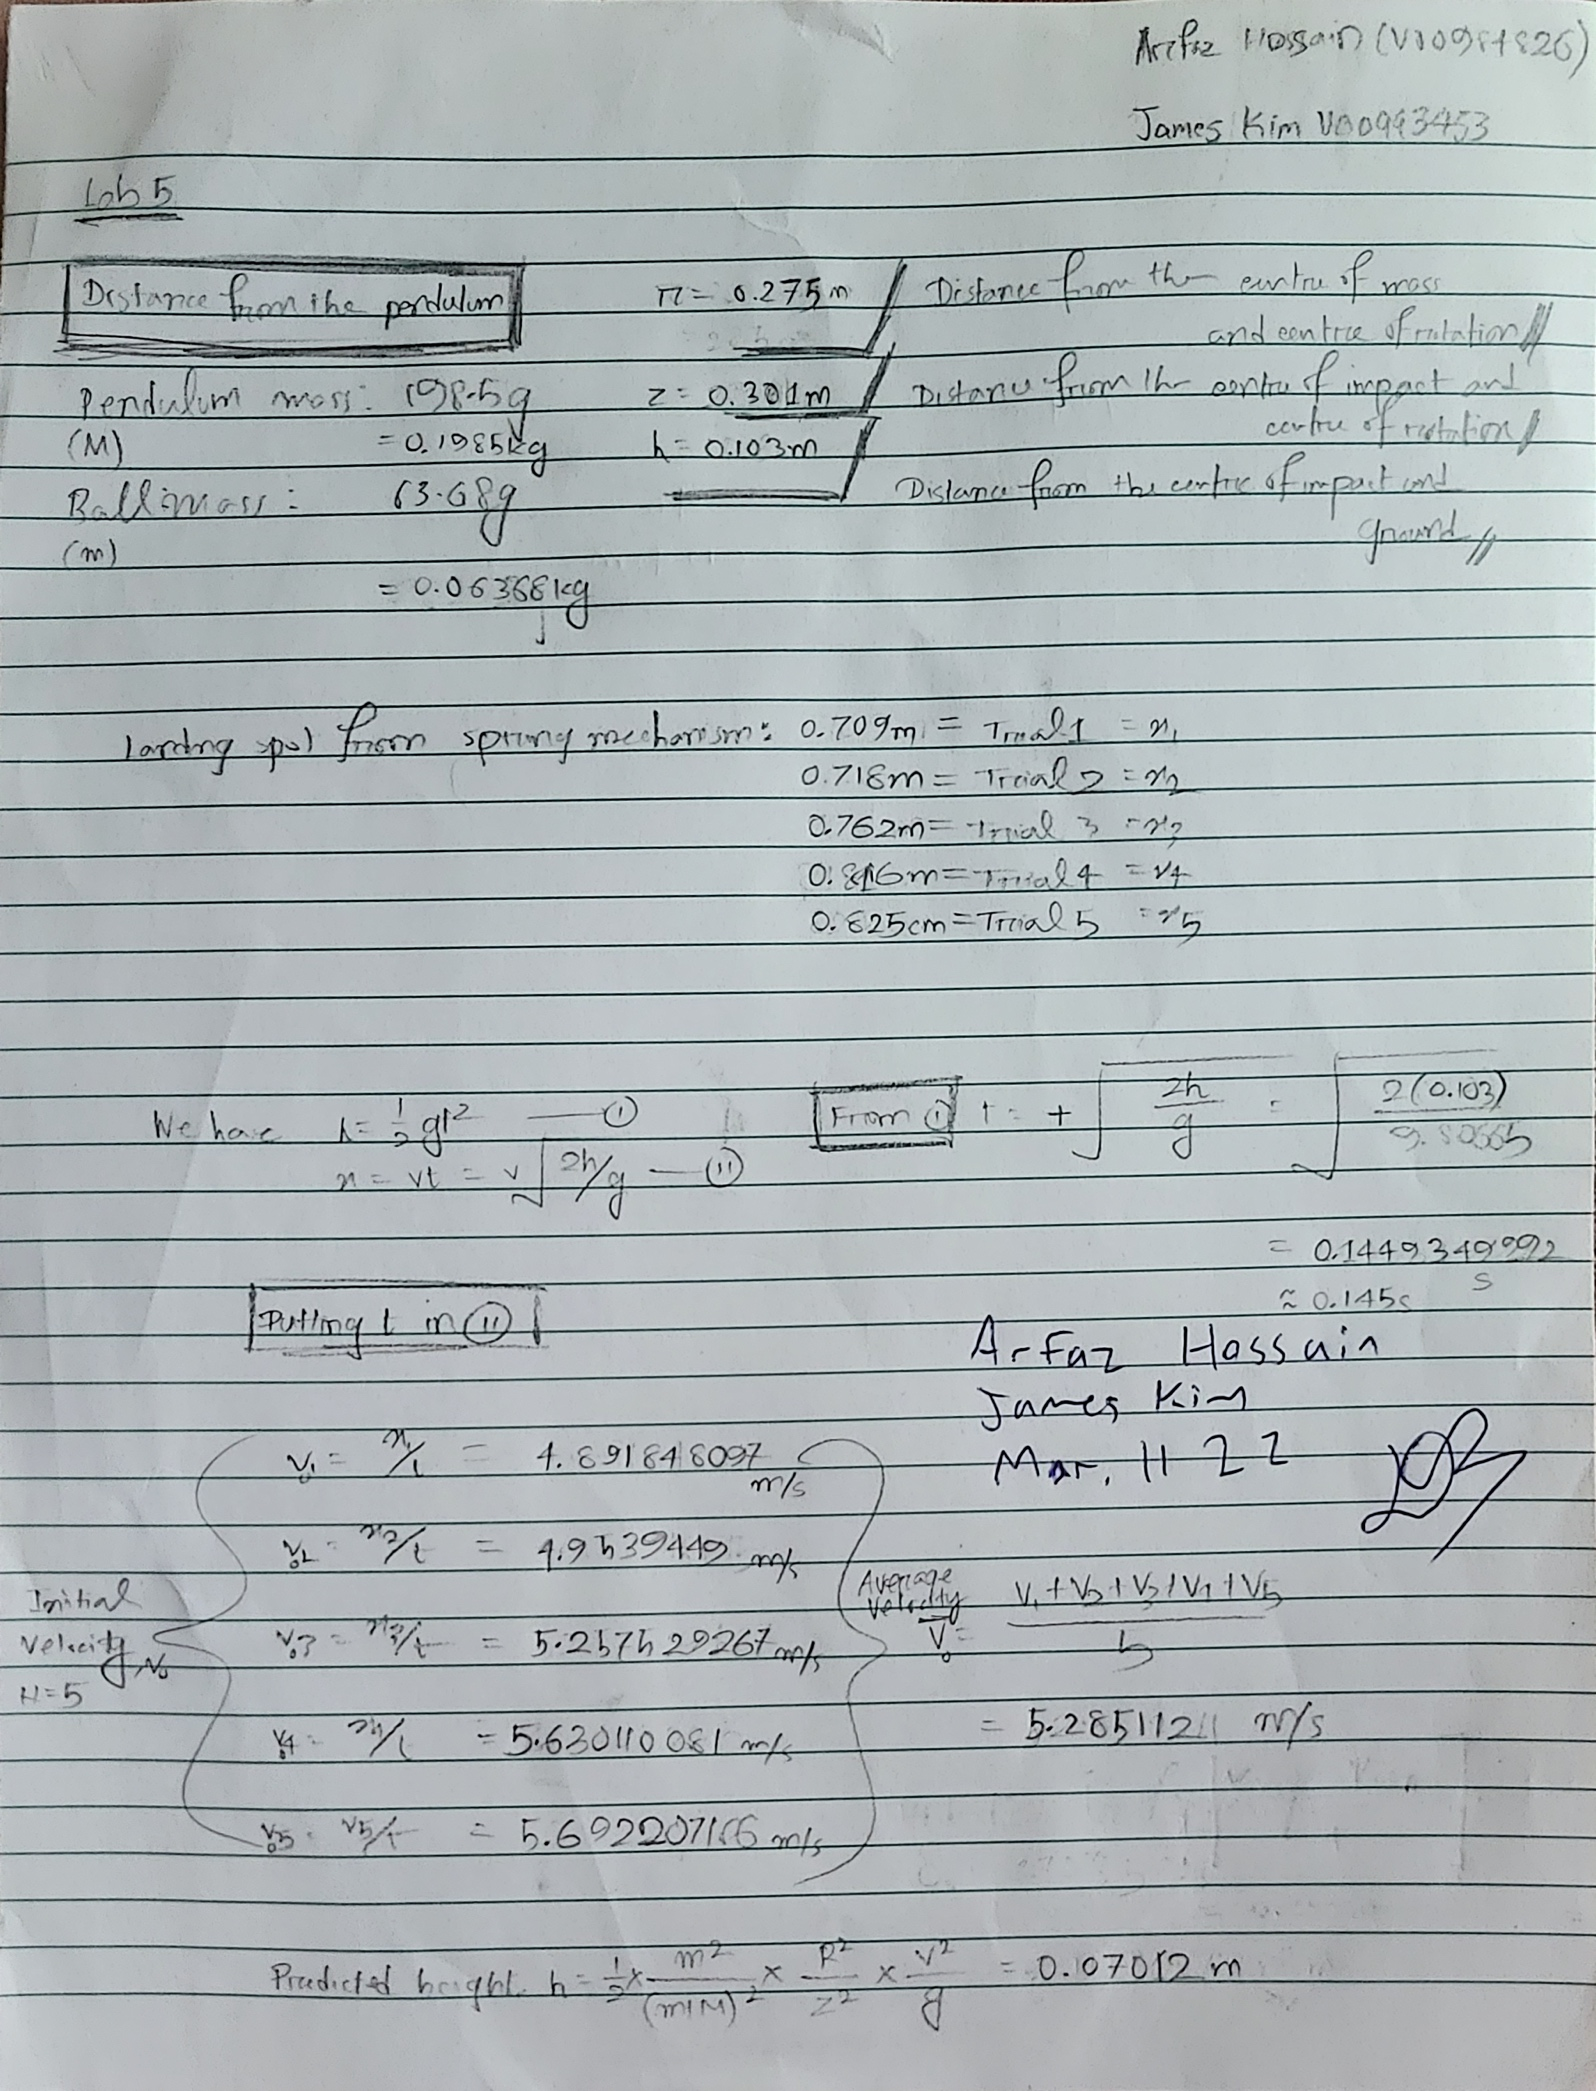 Arefaz Hossain (V00984826)
James Kim V00993453
Lab 5
Distance from the pendulum
r = 0.275m / Distance from the centre of mass
and centre of rotation //
Pendulum mass: 198.5g
z = 0.301m / Distance from the centre of impact and
centre of rotation //
(M) = 0.1985kg
h = 0.103m / Distance from the centre of impact and
ground //
Ball mass: 63.68g
(m)
= 0.06368kg
landing spot from spring mechanism: 0.709m = Trial 1 = x₁
0.718m = Trial 2 = x₂
0.762m = Trial 3 = x₃
0.816m = Trial 4 = x₄
0.825cm = Trial 5 = x₅
We have h = 1/2 gt² — (i)
x = vt = v√2h/g — (ii)
From (i) t = + √(2h/g) = √(2(0.103)/9.80665)
= 0.1449349992 s
≈ 0.145s
Putting t in (ii)
Arfaz Hossain
James Kim
Mar. 11 22
v₀₁ = x₁/t = 4.891848097 m/s
v₀₂ = x₂/t = 4.9539449 m/s
v₀₃ = x₃/t = 5.257529267 m/s
v₀₄ = x₄/t = 5.630110081 m/s
v₀₅ = x₅/t = 5.692207166 m/s
Initial
velocity V₀
N=5
Average
velocity
V̄₀ = (V₁+V₂+V₃+V₄+V₅)/5
= 5.28511211 m/s
Predicted height h = 1/2 × m²/(m+M)² × R²/z² × v²/g = 0.107012 m